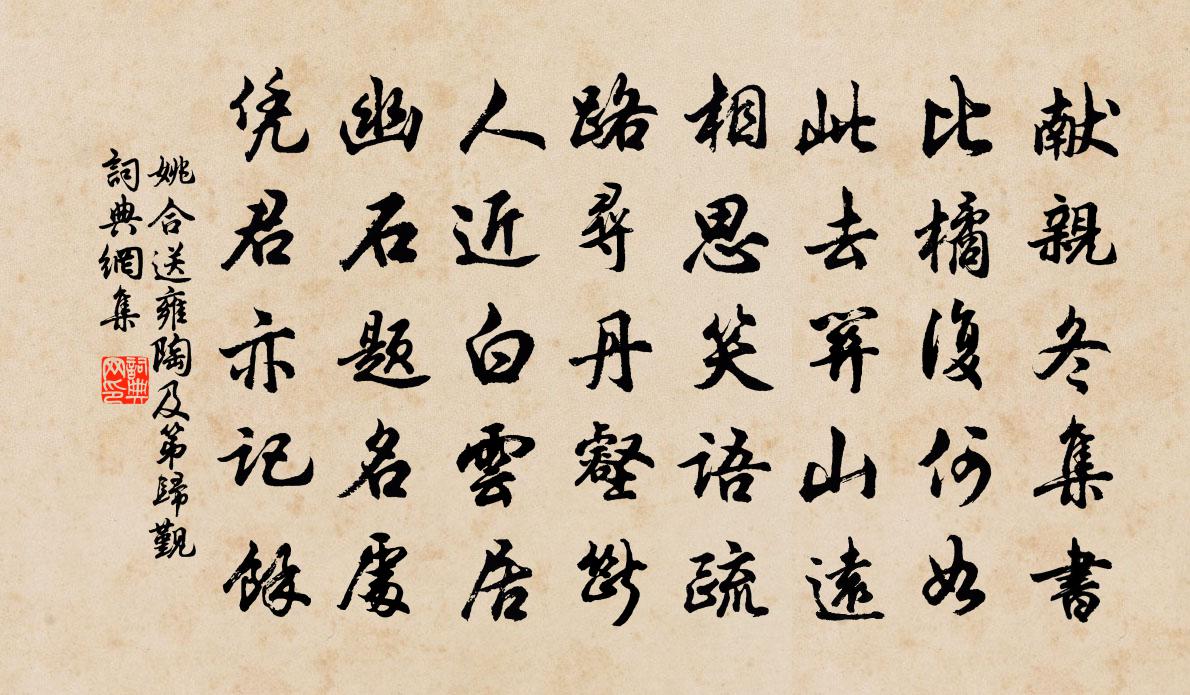 献親冬集書
比橘復何如
此去關山遠
相思笑語疏
路尋丹壑斷
人近白雲居
幽石題名處
凭君亦記餘
姚合送雍陶及第歸覲
詞典網集
詞典网印